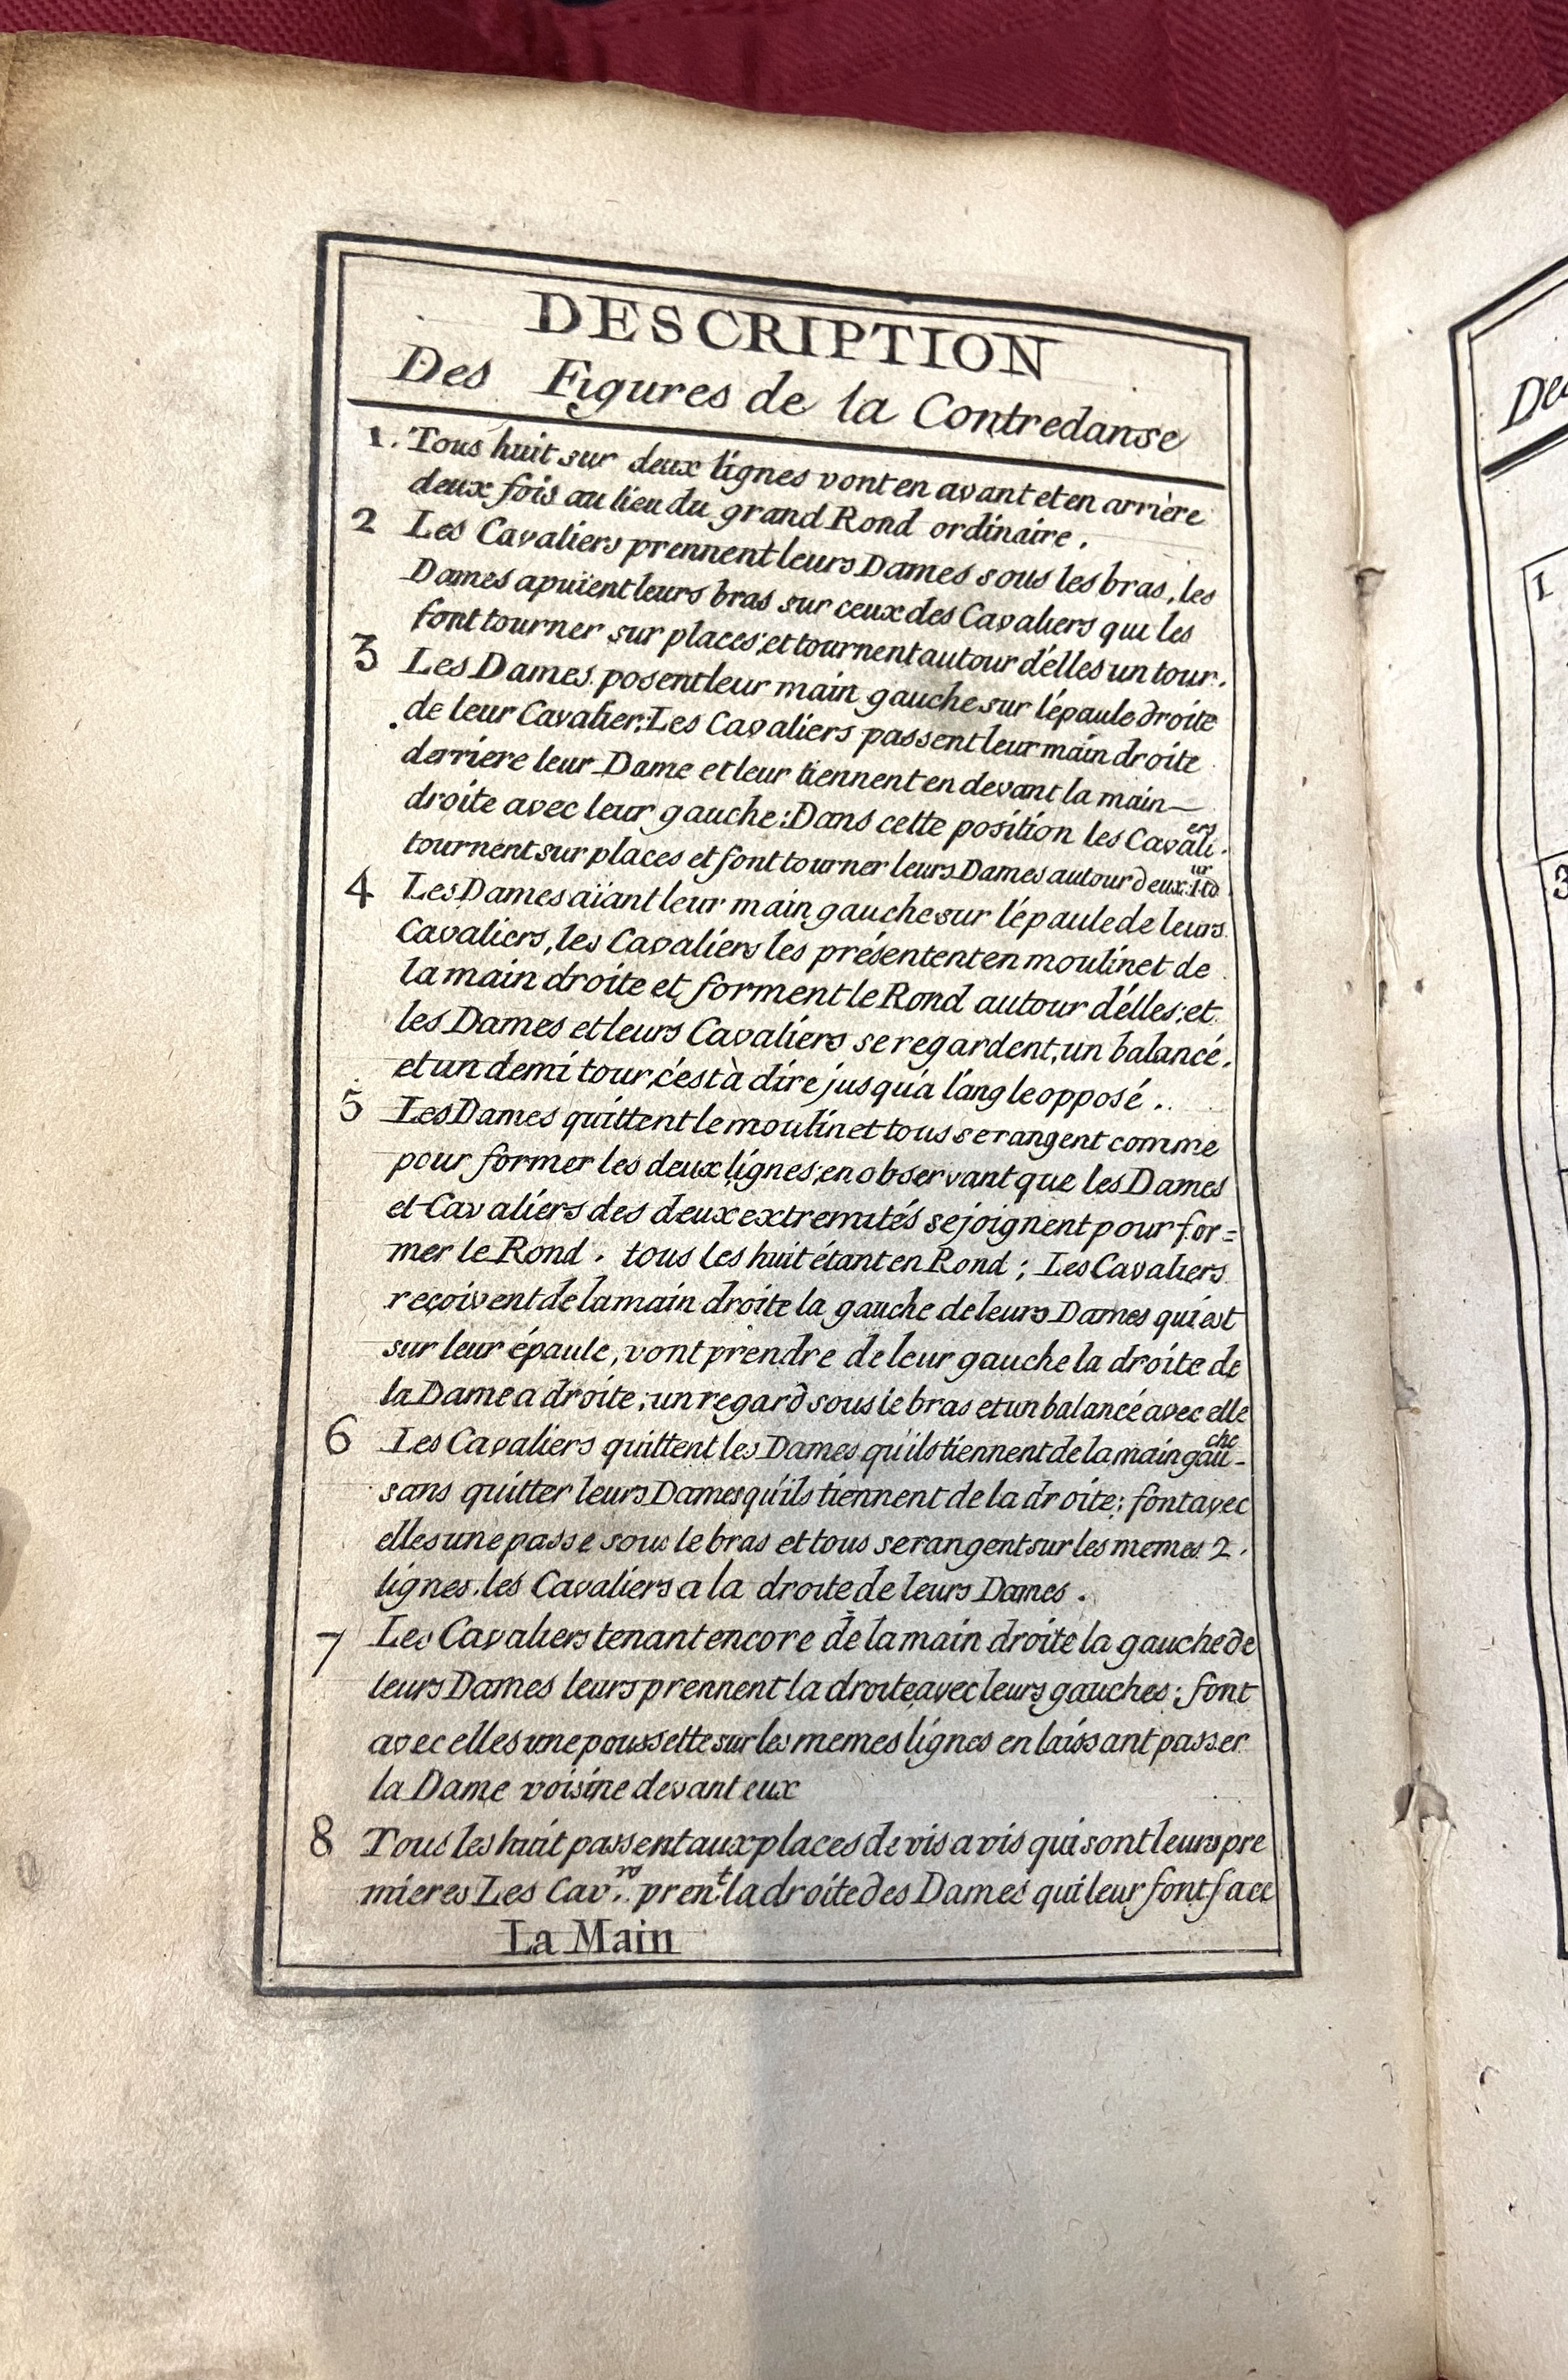 DESCRIPTION
Des Figures de la Contredanse
1. Tous huit sur deux lignes vont en avant et en arrière
deux fois au lieu du grand Rond ordinaire.
2 Les Cavaliers prennent leurs Dames sous les bras, les
Dames apuïent leurs bras sur ceux des Cavaliers qui les
font tourner sur places; et tournent autour d'elles un tour.
3 Les Dames posent leur main gauche sur l'épaule droite
de leur Cavalier; Les Cavaliers passent leur main droite
derriere leur Dame et leur tiennent en devant la main
droite avec leur gauche: Dans cette position les Cavaliers
tournent sur places et font tourner leurs Dames autour deux: 1 tour
4 Les Dames aïant leur main gauche sur l'épaule de leurs
Cavaliers, les Cavaliers les présentent en moulinet de
la main droite et forment le Rond autour d'elles; et
les Dames et leurs Cavaliers se regardent, un balancé.
et un demi tour, c'est à dire jusqu'a l'angle opposé.
5 Les Dames quittent le moulinet tous se rangent comme
pour former les deux lignes; en observant que les Dames
et Cavaliers des deux extremités se joignent pour for=
mer le Rond. tous les huit étant en Rond; Les Cavaliers
reçoivent de la main droite la gauche de leurs Dames qui est
sur leur épaule, vont prendre de leur gauche la droite de
la Dame a droite; un regard sous le bras et un balancé avec elle
6 Les Cavaliers quittent les Dames qu'ils tiennent de la main gauche
sans quitter leurs Dames qu'ils tiennent de la droite; font avec
elles une passe sous le bras et tous se rangent sur les memes 2.
lignes. les Cavaliers a la droite de leurs Dames.
7 Les Cavaliers tenant encore de la main droite la gauche de
leurs Dames leurs prennent la droite avec leurs gauches; font
avec elles une poussette sur les memes lignes en laissant passer
la Dame voisine devant eux
8 Tous les huit passent aux places de vis a vis qui sont leurs pre
mieres Les Cav.rs prent. la droite des Dames qui leur font face
La Main
Des
1
3